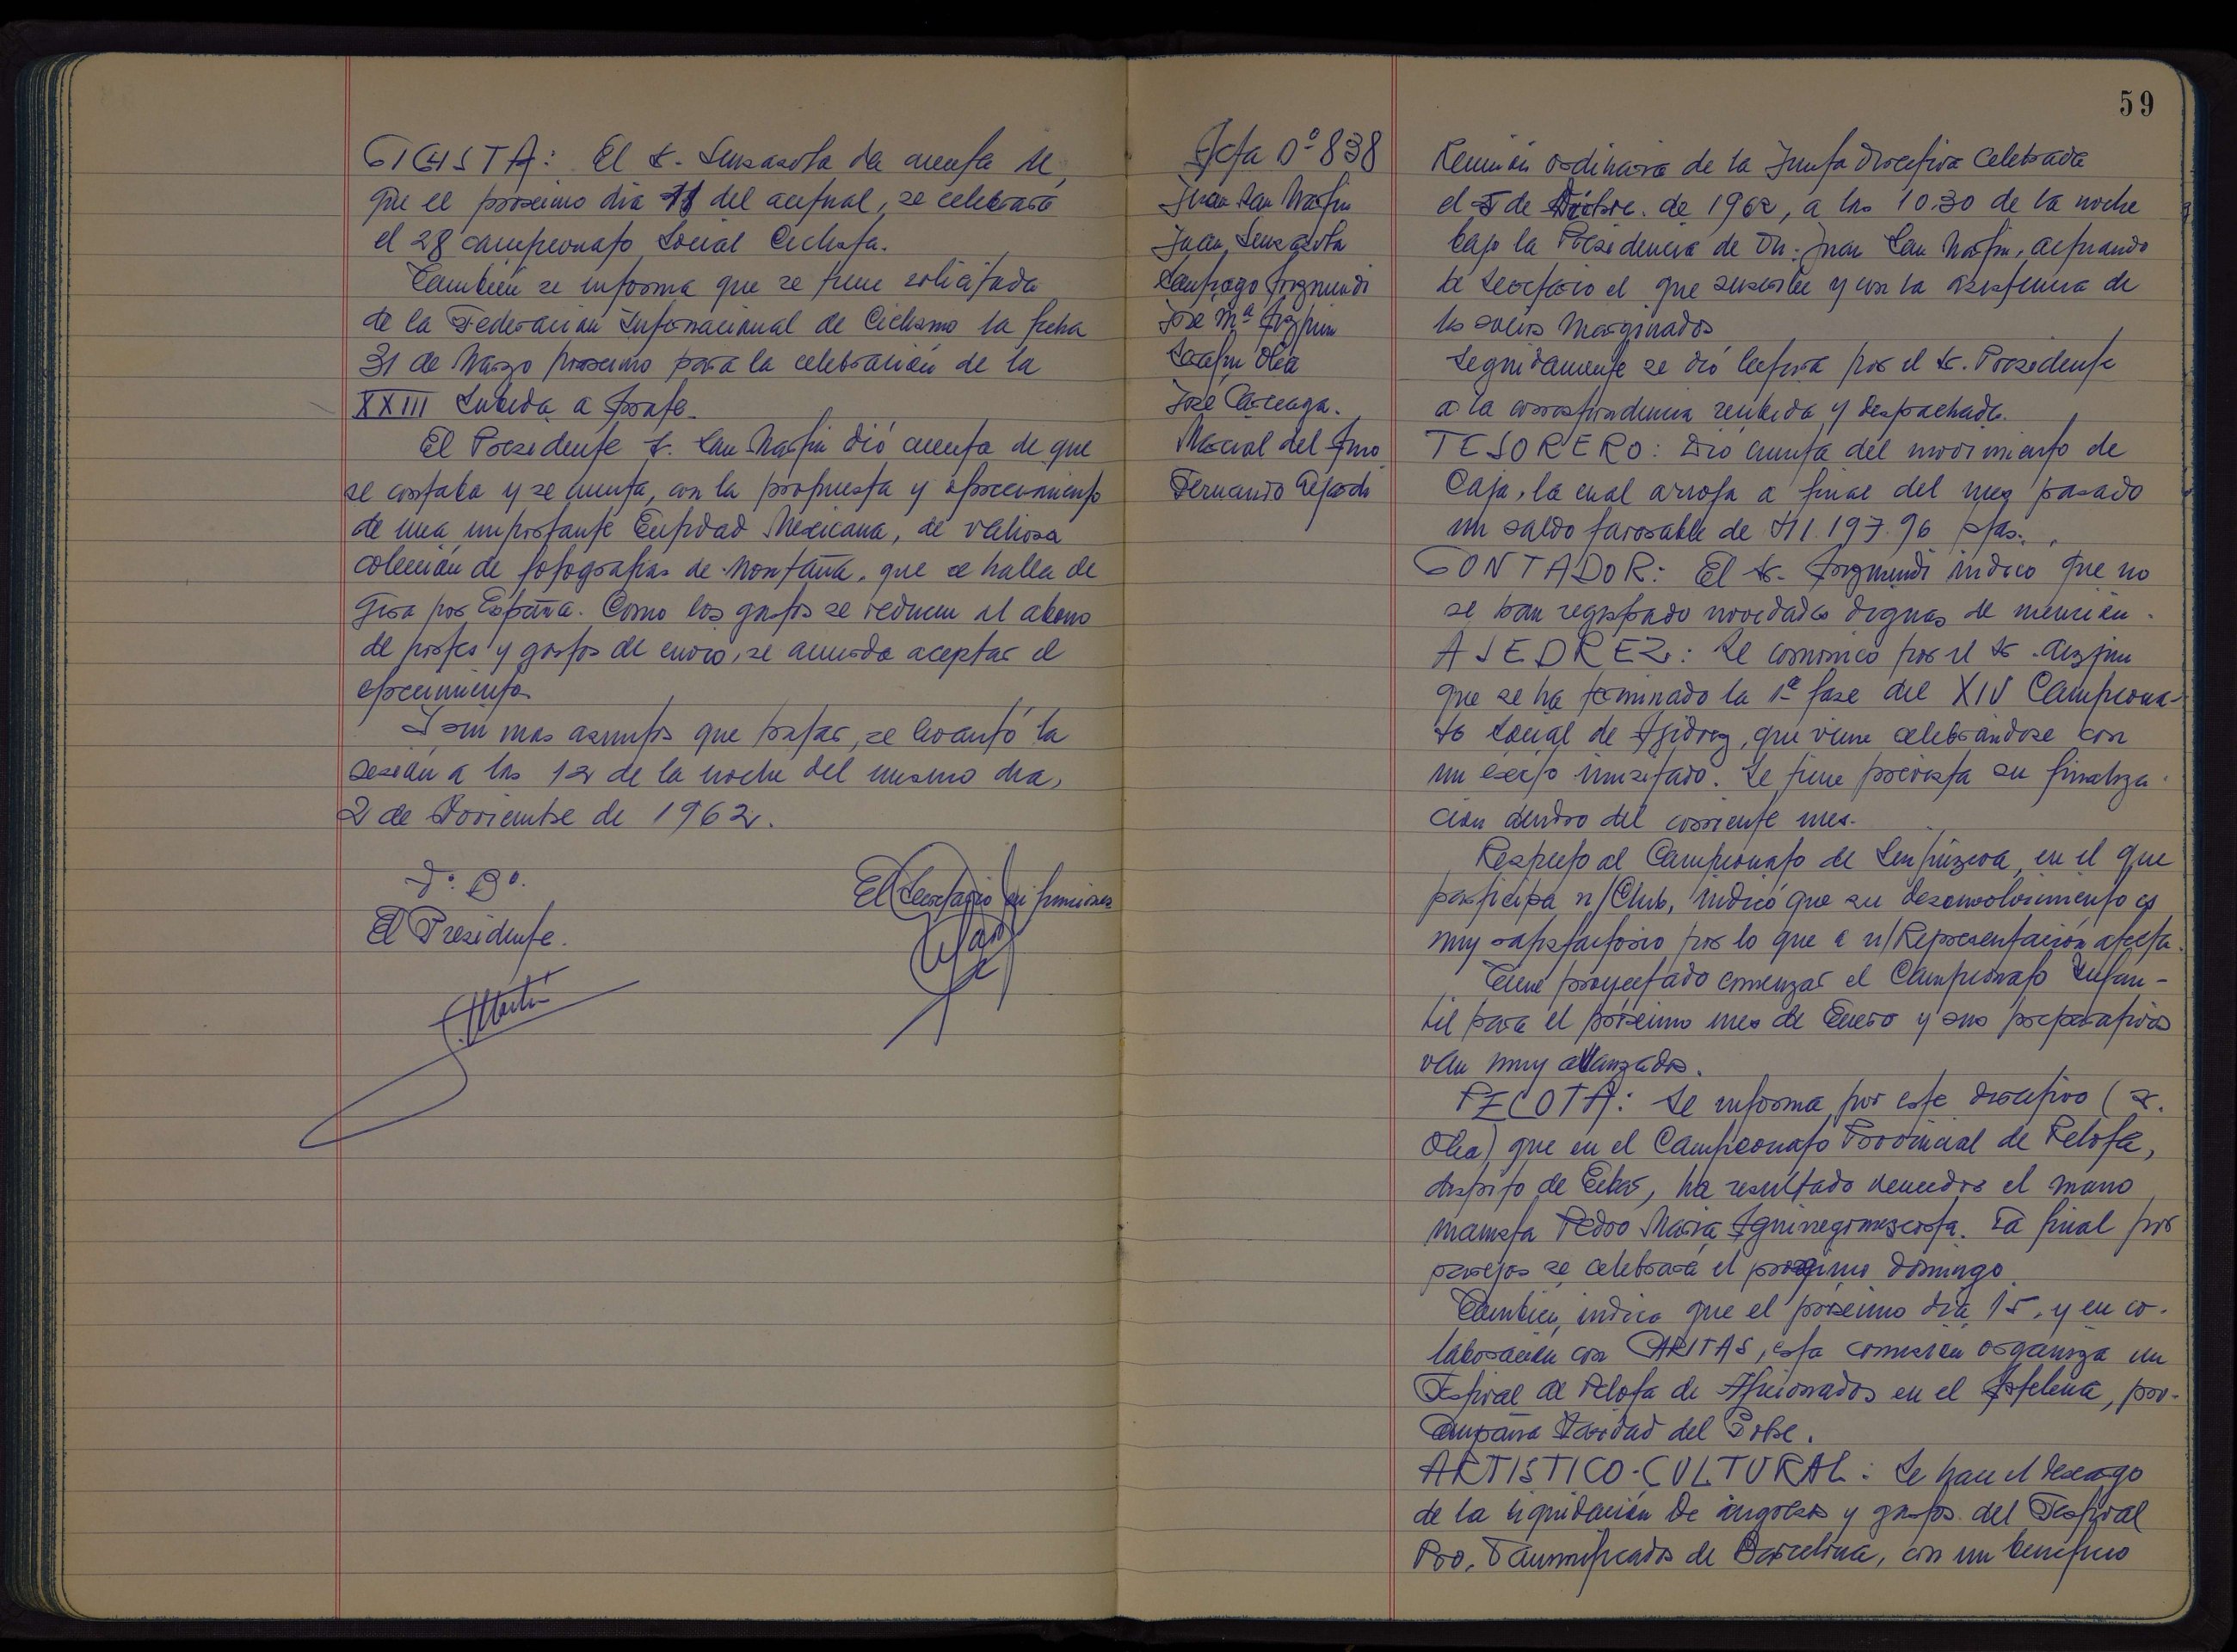 CICLISTA: El Sr. Sensasola da cuenta de
que el proximo dia 18 del actual, se celebrará
el 28 campeonato Social Ciclista.
Tambien se informa que se tiene solicitada
de la Federación Internacional de Ciclismo la fecha
31 de Marzo proximo para la celebración de la
XXIII Subida a Arrate.
El Presidente Sr. San Martin dió cuenta de que
se contaba y se cuenta, con la propuesta y ofrecimiento
de una importante Entidad Mexicana, de valiosa
colección de fotografias de Montaña, que se halla de
Gira por España. Como los gastos se reducen al abono
de portes y gastos de envio, se acuerda aceptar el
ofrecimiento.
Y sin mas asuntos que tratar, se levantó la
sesión a las 12 de la noche del mismo dia,
2 de Noviembre de 1962.
Vº. Bº.
El Presidente.
El Secretario en funciones
Acta nº 838
Juan San Martin
Juan Sensasola
Santiago Arizmendi
Jose Mª Aizpun
Serafin Olea
Jose Careaga.
Marcial del Amo
Fernando Aejardi
59
Reunión ordinaria de la Junta Directiva Celebrada
el 5 de Dicbre. de 1962, a las 10.30 de la noche
bajo la Presidencia de Dn. Juan San Martin, actuando
de Secretario el que suscribe y con la asistencia de
los socios Marginados
Seguidamente se dió lectura por el Sr. Presidente
a la correspondencia recibida y despachada.
TESORERO: Dió cuenta del movimiento de
Caja, la cual arroja a final del mes pasado
un saldo favorable de 411.197.96 ptas.
CONTADOR: El Sr. Arizmendi indico que no
se han registrado novedades dignas de mención.
AJEDREZ: Se comunico por el Sr. Aizpun
que se ha terminado la 1ª fase del XIV Campeona-
to Social de Ajedrez, que viene celebrandose con
un éxito inusitado. Se tiene prevista su finaliza-
ción dentro del corriente mes.
Respecto al Campeonato de Guipúzcoa, en el que
participa n/Club, indicó que su desenvolvimiento es
muy satisfactorio por lo que a n/Representación afecta.
Tiene proyectado comenzar el Campeonato Infan-
til para el próximo mes de Enero y sus preparativos
van muy avanzados.
PELOTA: Se informa por este directivo (Sr.
Olea) que en el Campeonato Provincial de Pelota,
distrito de Eibar, ha resultado vencedor el mano
manista Pedro Maria. La final por
parejas se celebrará el proximo domingo.
Tambien, indica que el próximo dia 15, y en co-
laboración con CARITAS, esta comisión organiza un
Festival de Pelota de Aficionados en el Astelena, pro-
Campaña Navidad del Pobre.
ARTISTICO-CULTURAL: Se hace el descargo
de la liquidación de ingresos y gastos del Festival
Pro. Damnificados de Barcelona, con un beneficio